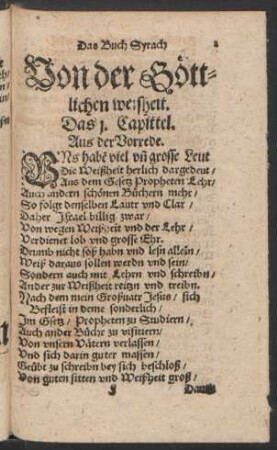 Das Buch Syrach
Von der Gött-
lichen weisheit.
Das 1. Capittel.
Aus der Vorrede.
UNs habē viel uñ grosse Leut
Die Weißheit herlich dargedeut /
Aus dem Gesetz Propheten Lehr /
Auch andern schönen Büchern mehr /
So folgt denselben Lautr vnd Clar /
Daher Israel billig zwar /
Von wegen Weißheit vnd der Lehr /
Verdienet lob vnd grosse Ehr.
Drumb nicht solß habn vnd lesn allein /
Weiß daraus sollen werdn vnd sein /
Sondern auch mit Lehrn vnd schreibn /
Ander zur Weißheit reitzn vnd treibn.
Nach dem mein Großuatr Jesus / sich
Befleist in deme sonderlich /
Im Gsetz / Propheten zu Studiern /
Auch ander Büchr zu visitiern /
Von vnsern Vätern verlassen /
Vnd sich darin guter massen /
Geübt zu schreibn bey sich beschloß /
Von guten sitten vnd Weißheit groß /